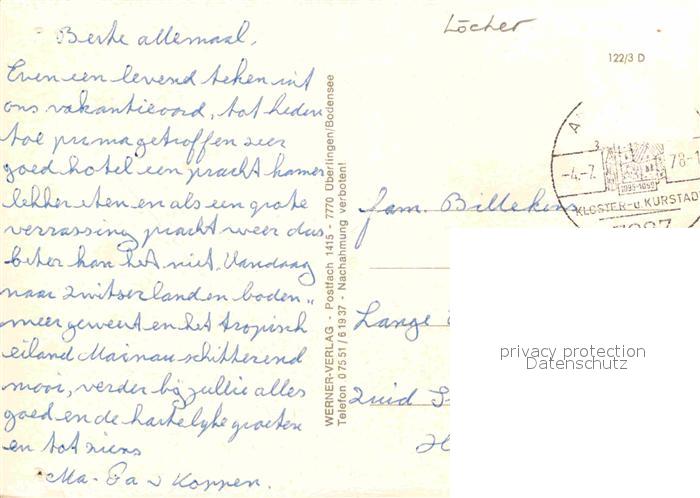 Beste allemaal,
Even een levend teken uit
ons vakantieoord, tot heden
toe prima getroffen zeer
goed hotel een pracht kamer
lekker eten en als een grote
verrassing pracht weer dus
beter kan het niet. Vandaag
naar Zwitserland en boden„
meer geweest en het tropisch
eiland Mainau schitterend
mooi, verder bij jullie alles
goed en de hartelijke groeten
en tot ziens
Ma - Pa v Koppen.
WERNER-VERLAG - Postfach 1415 - 7770 Überlingen/Bodensee
Telefon 07551/61937 - Nachahmung verboten!
Löcher
122/3 D
-4.-7.
78-1
1095-1095
KLOSTER-u. KURSTAD
fam. Billekens
Lange
Zuid
privacy protection
Datenschutz